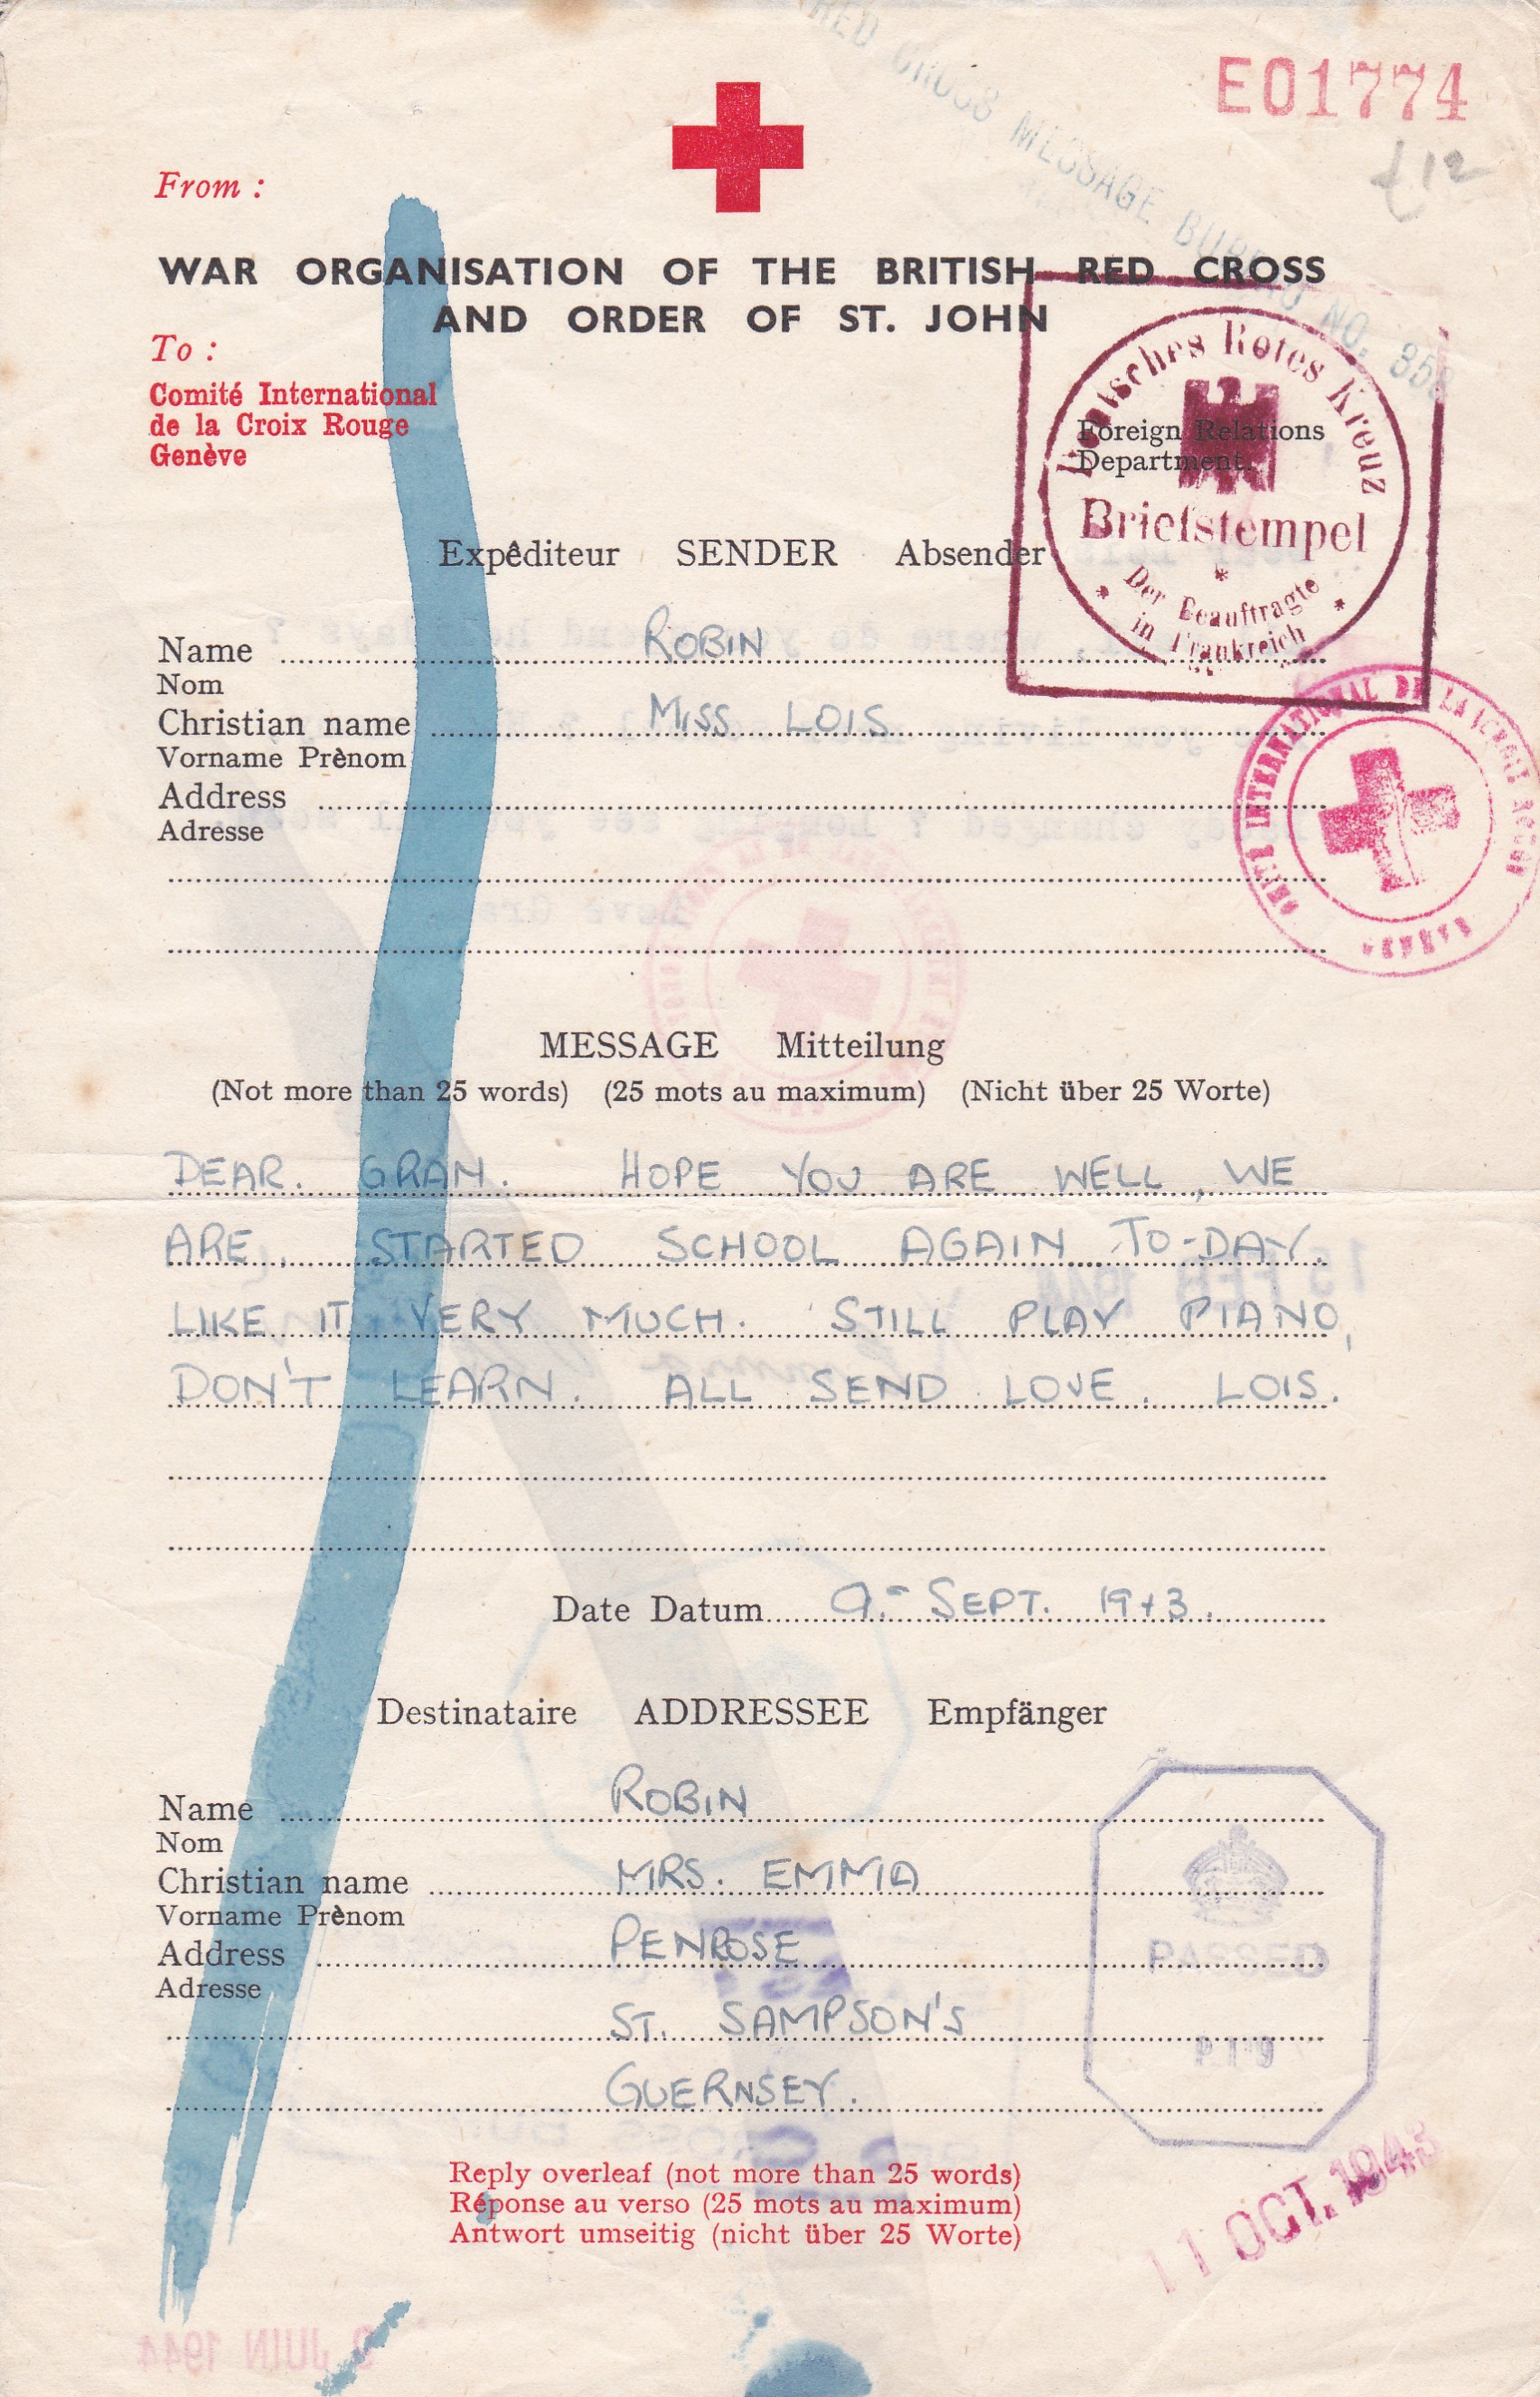 RED CROSS MESSAGE BUREAU NO. 35
E01774
£12
From :
WAR ORGANISATION OF THE BRITISH RED CROSS
AND ORDER OF ST. JOHN
To :
Comité International
de la Croix Rouge
Genève
Foreign Relations
Department.
Deutsches Rotes Kreuz
Briefstempel
Der Beauftragte
in Frankreich
Expêditeur SENDER Absender
Name ROBIN
Nom
Christian name MISS LOIS
Vorname Prènom
Address
Adresse
COMITÉ INTERNATIONAL DE LA CROIX ROUGE
GENÈVE
MESSAGE Mitteilung
(Not more than 25 words) (25 mots au maximum) (Nicht über 25 Worte)
DEAR. GRAN. HOPE YOU ARE WELL, WE
ARE, STARTED SCHOOL AGAIN TO-DAY.
LIKE IT VERY MUCH. STILL PLAY PIANO,
DON'T LEARN. ALL SEND LOVE. LOIS.
Date Datum 9.- SEPT. 1943.
Destinataire ADDRESSEE Empfänger
Name ROBIN
Nom
Christian name MRS. EMMA
Vorname Prènom
Address PENROSE
Adresse
ST. SAMPSON'S
GUERNSEY.
PASSED
P.19
Reply overleaf (not more than 25 words)
Réponse au verso (25 mots au maximum)
Antwort umseitig (nicht über 25 Worte)
11 OCT. 1943
2 JUIN 1944